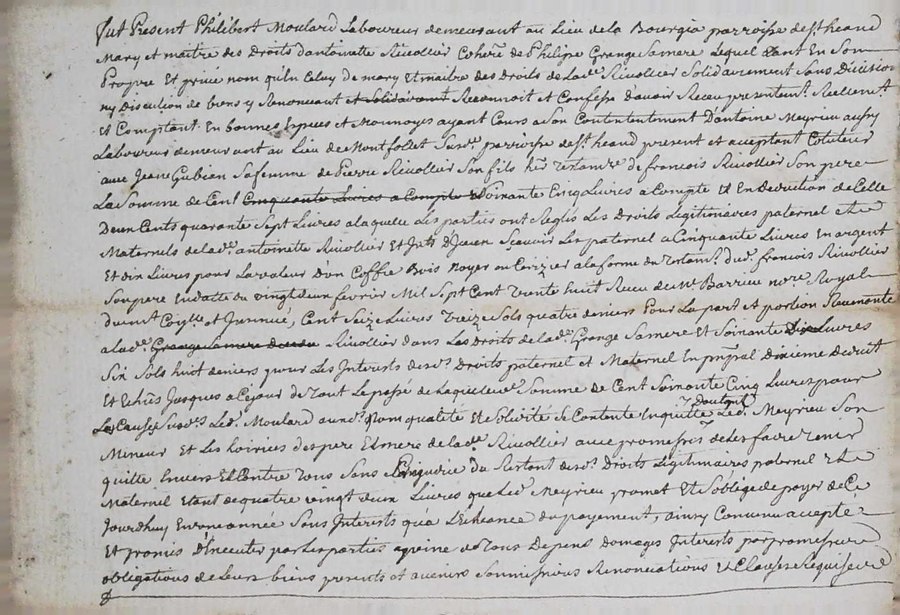 fut Present Philibert Moulard Laboureur demeurant au Lieu de la Bourgia parroisse de st heand
Mary et maitre des Droits d'antoinette Rivollier Coherre de Philipe Grange Samere Lequel Etant En Son
Propre Et privé nom qu'En Celuy de mary et maitre des Droits de Lade Rivollier Solidairement Sans Division
ny Discution de biens y Renonceant et Solidairement Reconnoit et Confesse D'avoir Receu presentemt Réellemt
Et Comptant En bonnes Especes et Monnoyes ayant Cours a Son Contentement D'antoine Meyrieu aussy
Laboureur demeurant au Lieu de Montfollet Susde parroisse de st heand present et acceptant Cotuteur
avec Jeane Gubian Sa femme de Pierre Rivollier Son fils her testamre de françois Rivollier Son pere
La Somme de Cent Cinquante Livres a Compte Et Soixante Cinq Livres a Compte Et En Deduction de Celle
Deux Cents quarante Sept Livres a laquelle Les parties ont Reglés Les Droits Legitimaires paternel Et
Maternels de lade antoinette Rivollier Et Jnts D'Jceux Scavoir Les paternel a Cinquante Livres En argent
Et dix Livres pour La valeur D'un Coffre Bois Noyer ou Cerizier a la forme du testamt dud. françois Rivollier
Son pere En datte du vingt deux fevrier Mil Sept Cent trente huit Receu de Me Barrieu nore Royal
dument Collé et Jnsinué, Cent Seize Livres treize Sols quatre deniers Pour La part et portion
a lade Grange Samere Rivollier dans Les Droits de lade Grange Samere Et Soixante Dix Livres
Six Sols huit deniers pour Les Interets desds Droits paternel et Maternel En prinpal Dixieme Deduit
Et Echus Jusques a Ce jour de tout Le passé de Laquelle de Somme de Cent Soixante Cinq Livres pour
Les Causes Susdes Led. Moulard aux noms qualité Et Solidité Se Contente En quitte Led. Meyrieu Son
Mineur Et Les hoiries des pere Et mere de lade Rivollier avec promesse de Les faire tenir
quitte Envers Et Contre tous Sans Préjudice du Restant desds Droits Legitimaires paternel Et
Maternel Etant de quatre vingt deux Livres que Led. Meyrieu promet Et S'oblige de payer de Ce
Jourdhuy En une année Sans Interets qu'a L'Echeance du payement, ainsy Convenu accepté
Et promis d'Executer par Les parties a peine de tous Depens Domages Interets par promesse
obligations de Leurs biens presents et avenirs Soumissions Renonciations Et Clauses Requises